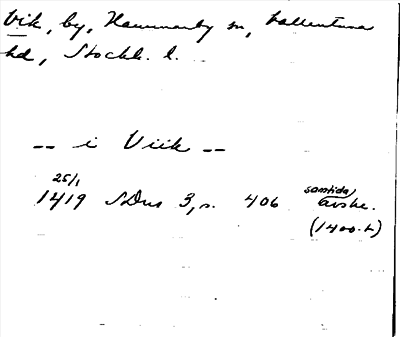 Vik, by, Hammarby sn, Vallentuna
hd, Stockh. l.
-- i Viik --
25/1
1419 SDns 3, s. 406 samtida avskr.
(1400-t)